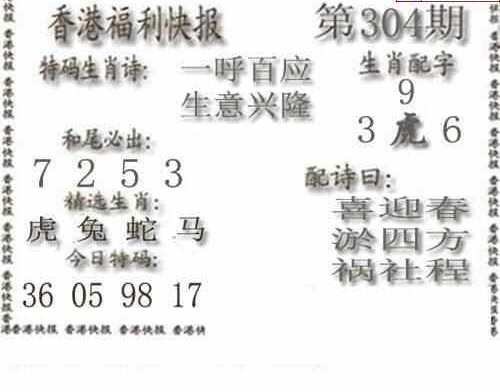 香港福利快报 第304期
特码生肖诗: 一呼百应
生意兴隆
生肖配字
9
3 虎 6
和尾必出:
7 2 5 3
精选生肖:
虎 兔 蛇 马
今日特码:
36 05 98 17
配诗曰:
喜迎春
淤四方
祸社程
香港快报 香港快报 香港快报 香港快报 香港快报